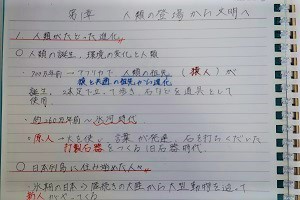 第1章 人類の登場から文明へ
1 人類がたどった進化
○人類の誕生、環境の変化と人類
・700万年前→アフリカで人類の祖先(猿人)が
誕生。2本足で立って歩き、石などを道具として
使用。
・約260万年前〜氷河時代
・原人→火を使い、言葉が発達。石を打ちくだいた
打製石器をつくる(旧石器時代)
○日本列島に住み始めた人々
・氷期の日本→陸続きの大陸から大型動物を追って
新人がやってくる